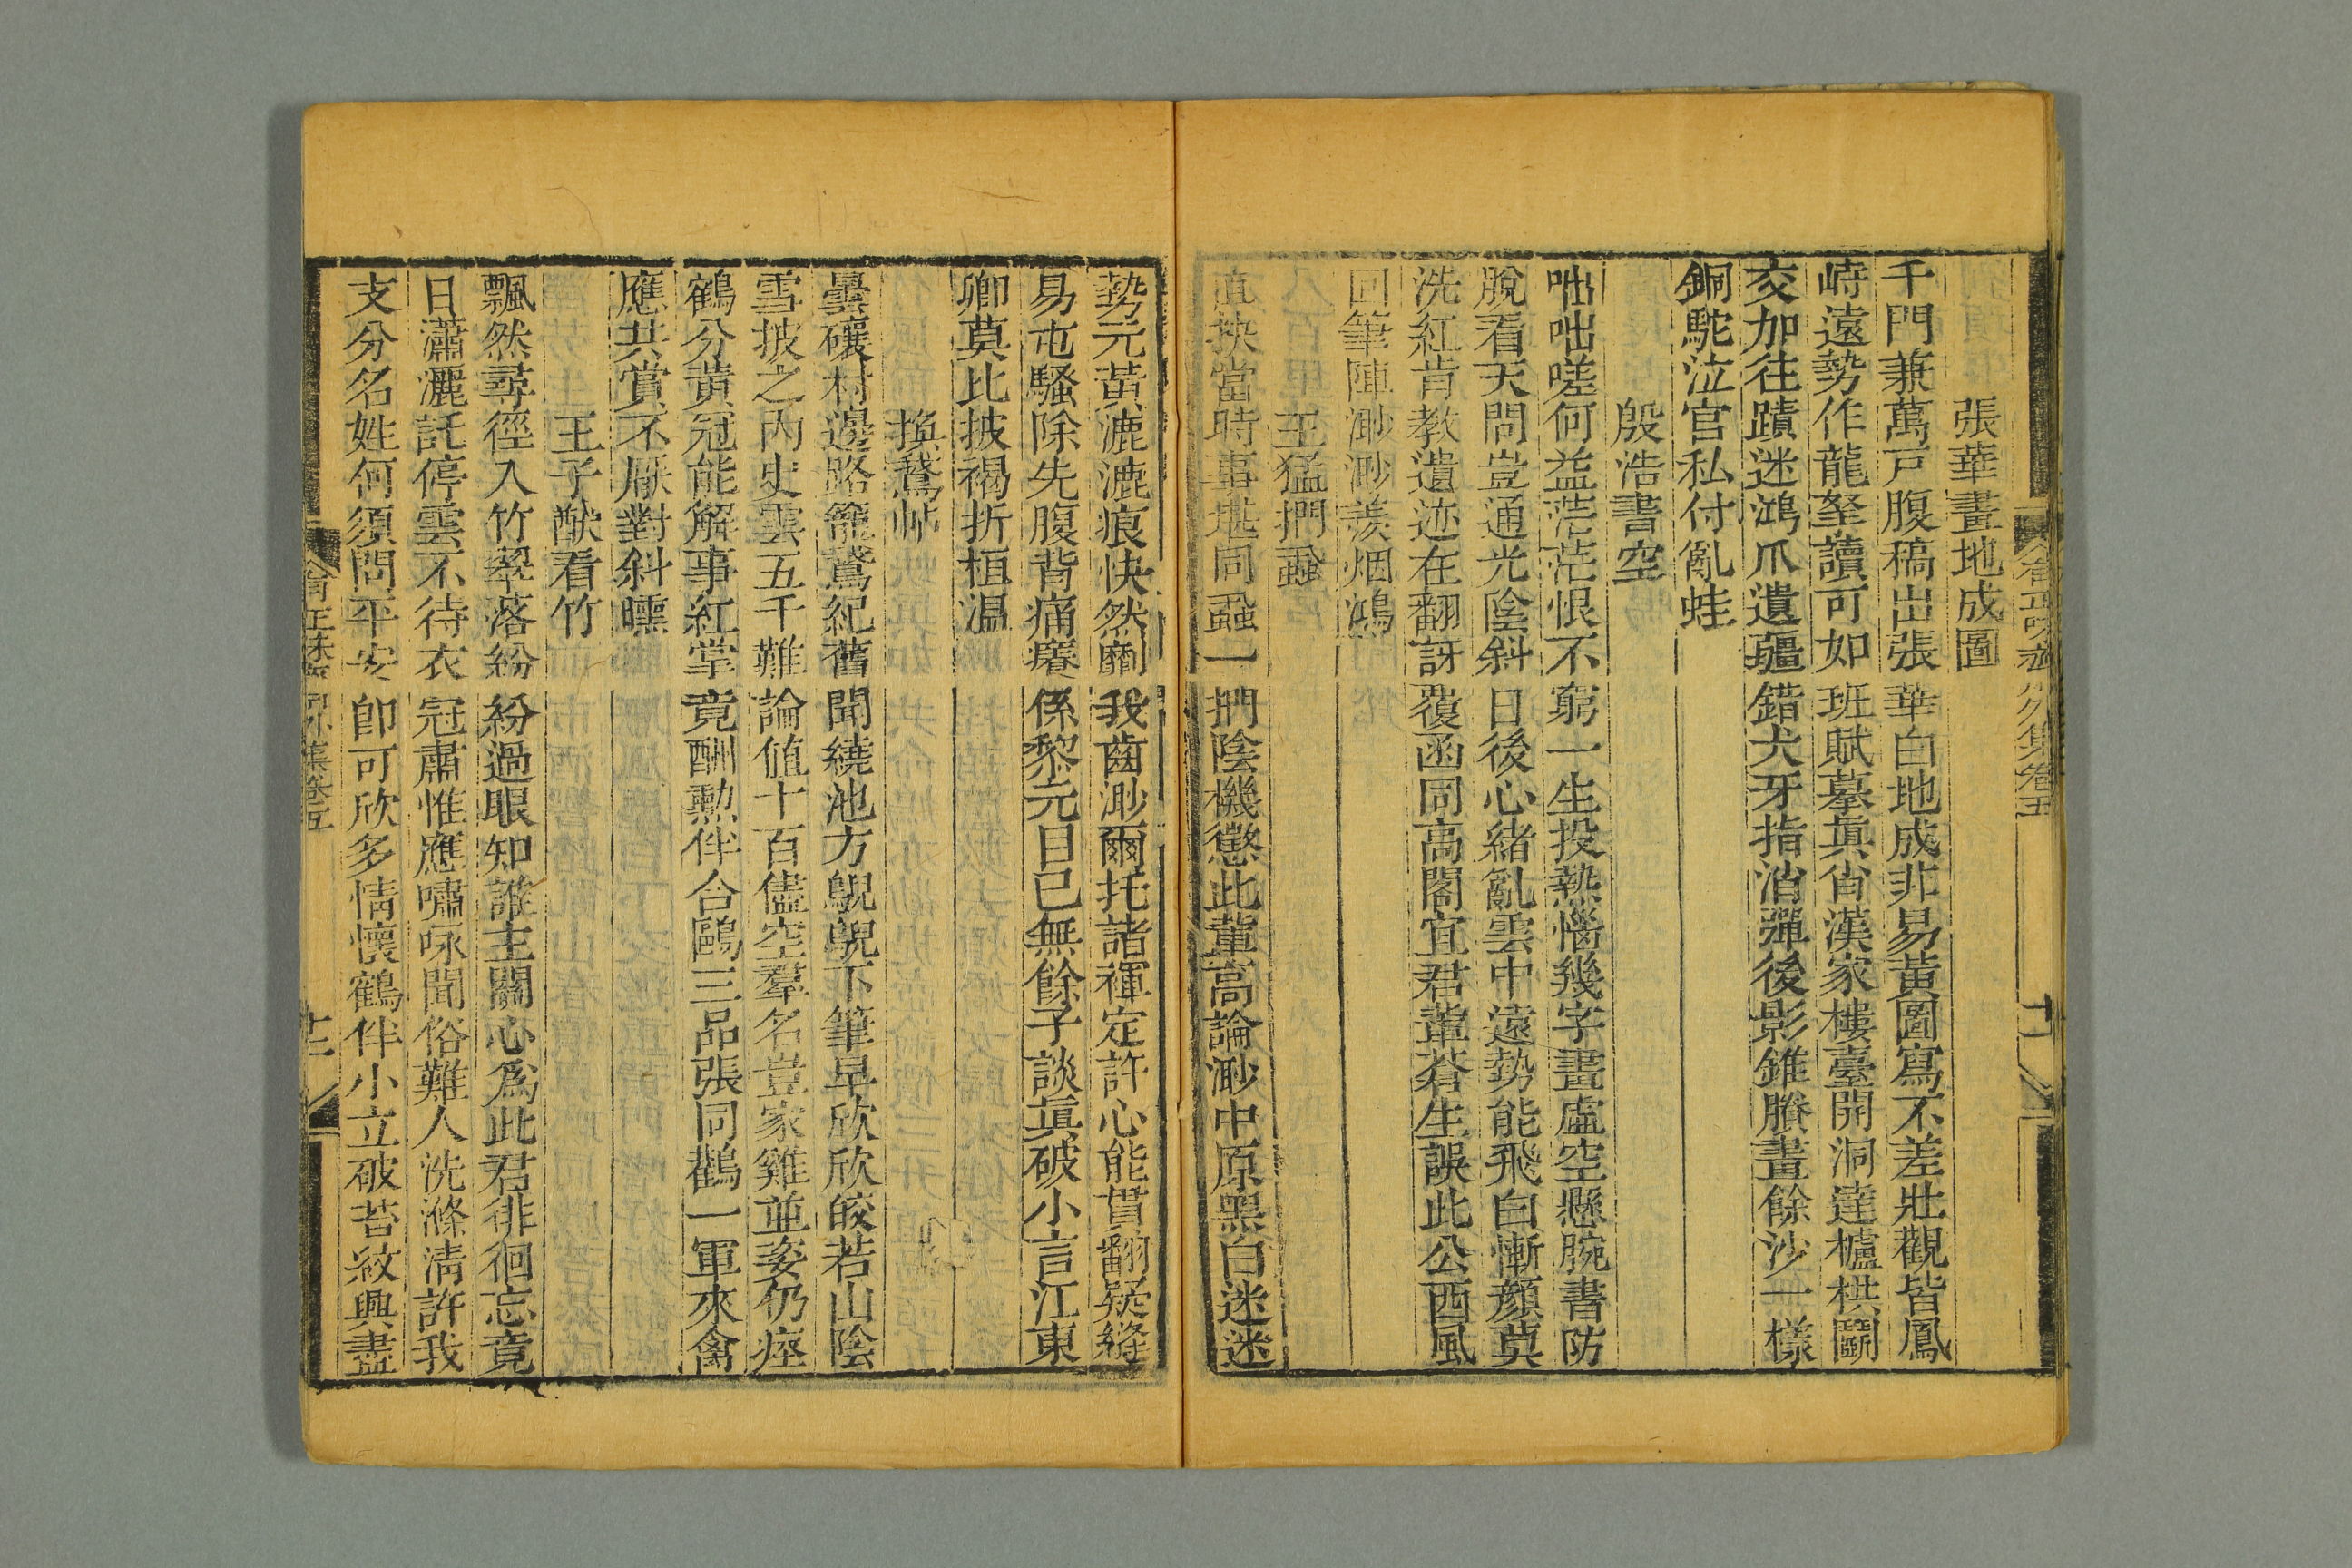 張華畫地成圖
千門兼萬戸腹稿出張華白地成非易黃圖寫不差壯觀皆鳳
峙遠勢作龍拏讀可如班賦摹眞肖漢家樓臺開洞達櫨栱鬭
交加往蹟迷鴻爪遺疆錯犬牙指消彈後影錐賸畫餘沙一樣
銅駝泣官私付亂蛙
殷浩書空
咄咄嗟何益茫茫恨不窮一生投熱惱幾字畫虛空懸腕書防
脫看天問豈通光陰斜日後心緒亂雲中遠勢能飛白慚顏莫
洗紅肯教遺迹在翻訝覆函同高閣宜君輩蒼生誤此公西風
回筆陣渺渺羨烟鴻
王猛捫蝨
直抉當時事堪同蝨一捫陰機懲此輩高論渺中原黑白迷迷
勢元黃漉漉痕快然劘我齒渺爾托諸褌定許心能貫翻疑縫
易屯騷除先腹背痛癢係黎元目已無餘子談眞破小言江東
卿莫比披褐折桓温
換鵞帖
曇礦村邊路籠鵞紀舊聞繞池方鶂鶂下筆早欣欣皎若山陰
雪披之內史雲五千難論值十百儘空羣名豈家雞並姿仍瘞
鶴分黃冠能解事紅掌竟酬勲伴合鷗三品張同鸛一軍來禽
應共賞不厭對斜曛
王子猷看竹
飄然尋徑入竹翠落紛紛過眼知誰主關心爲此君徘徊忘竟
日瀟灑託停雲不待衣冠肅惟應嘯咏聞俗難人洗滌淸許我
支分名姓何須問平安卽可欣多情懷鶴伴小立破苔紋興盡
外集卷五
十二